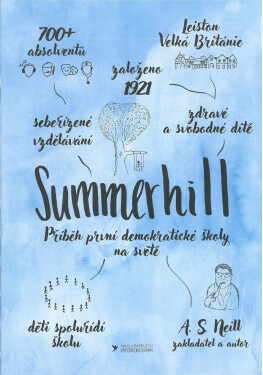 700+
absolventů
Leiston
Velká Británie
založeno
1921
seberízené
vzdělávání
zdravé
a svobodné dítě
Summerhill
Příběh první demokratické školy
na světě
děti spoluřídí
školu
A. S. Neill
zakladatel a autor
NAKLADATELSTVÍ
PETERERZSÁK